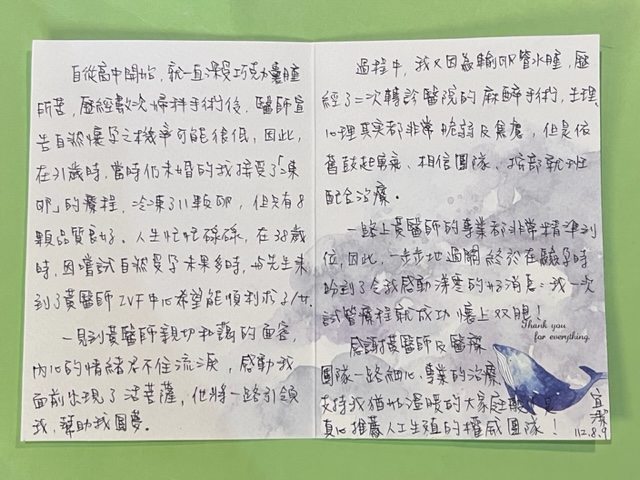 自從高中開始,就一直深受巧克力囊腫
所苦,歷經數次婦科手術後,醫師宣
告自然懷孕之機率可能很低,因此,
在31歲時,當時仍未婚的我接受了「凍
卵」的療程,冷凍了11顆卵,但只有8
顆品質良好。人生忙忙碌碌,在38歲
時,因嘗試自然受孕未果多時,與先生來
到了黃醫師IVF中心希望能順利求子/女。
一見到黃醫師親切和藹的面容,
內心的情緒忍不住流淚,感動我
面前出現了活菩薩,他將一路引領
我,幫助我圓夢。
過程中,我又因為輸卵管水腫,歷
經了二次轉診醫院的麻醉手術,生理、
心理真實都非常脆弱及焦慮,但是依
舊鼓起勇氣、相信團隊、按部就班
配合治療。
一路上黃醫師的專業都非常精準到
位,因此,一步步地過關終於在驗孕時
盼到了令我感動落淚的好消息:我一次
試管療程就成功懷上双胞!
Thank you
for everything.
感謝黃醫師及醫療
團隊一路細心、專業的治療
支持我猶如溫暖的大家庭
真心推薦人工生殖的權威團隊!
宜潔
112.8.9